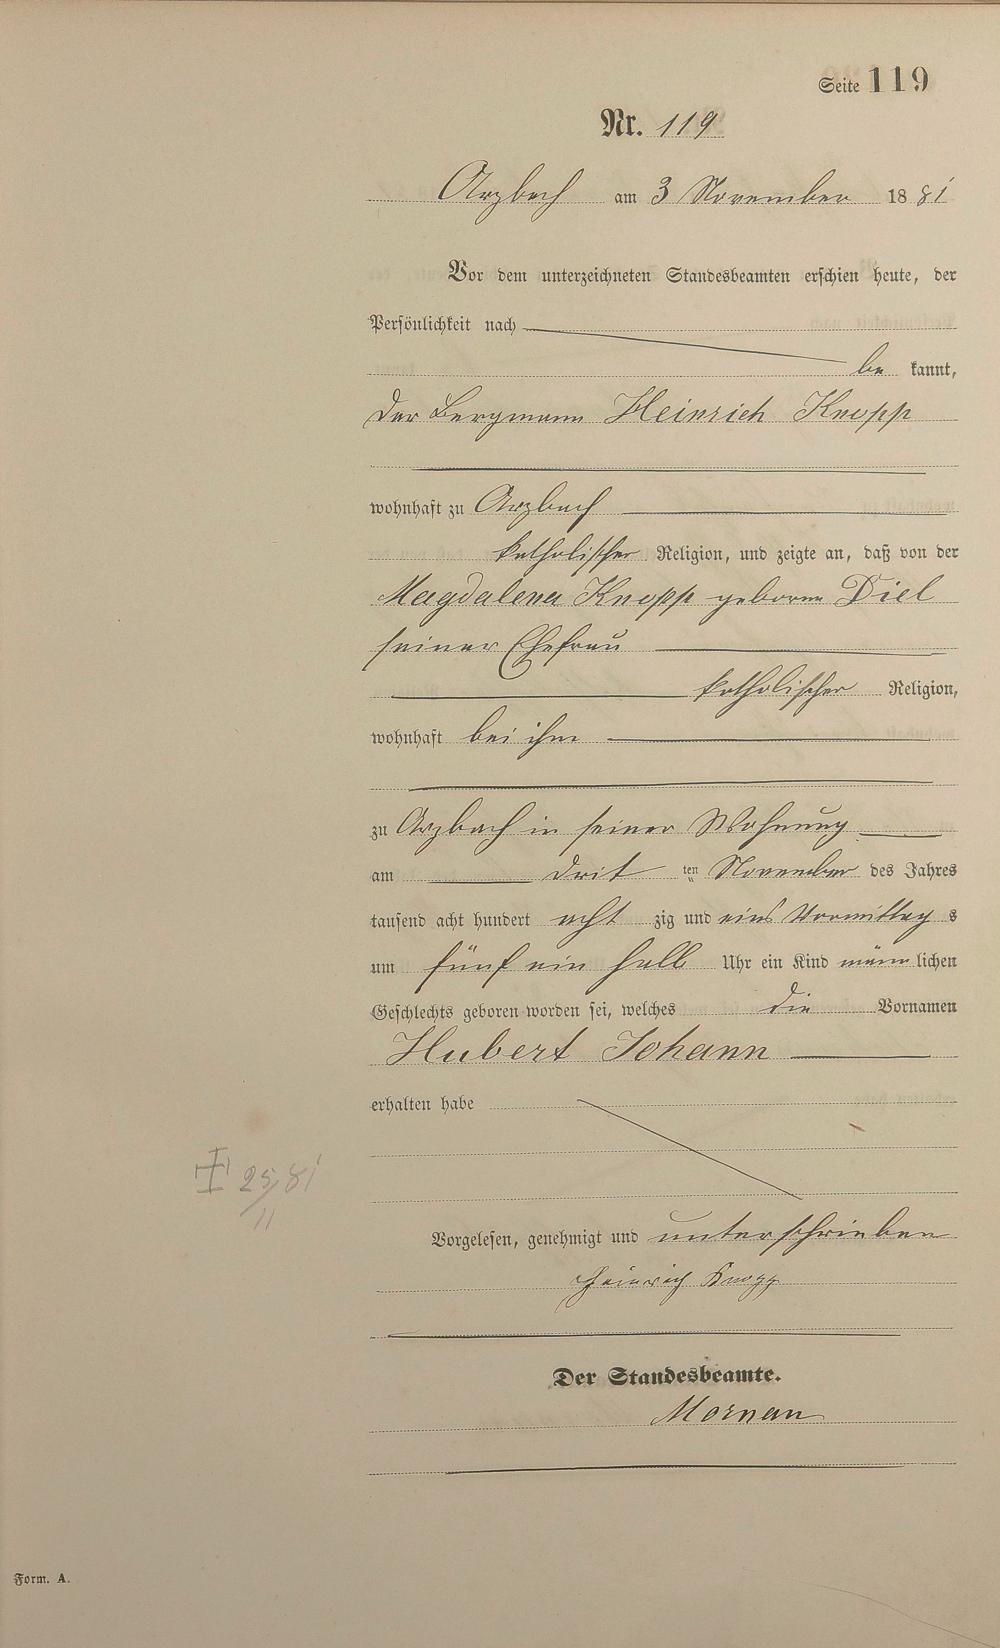 Seite 119
Nr. 119
Arzbach am 3 November 1881
Vor dem unterzeichneten Standesbeamten erschien heute, der
Persönlichkeit nach
be kannt,
der Bergmann Heinrich Knopp
wohnhaft zu Arzbach
katholischer Religion, und zeigte an, daß von der
Magdalena Knopp geborne Diel
seiner Ehefrau
katholischer Religion,
wohnhaft bei ihm
zu Arzbach in seiner Wohnung
am drit ten November des Jahres
tausend acht hundert acht zig und eins Vormittag s
um fünf ein halb Uhr ein Kind männ lichen
Geschlechts geboren worden sei, welches die Vornamen
Hubert Johann
erhalten habe
25/11 81
Vorgelesen, genehmigt und unterschrieben
Heinrich Knopp
Der Standesbeamte.
Form. A.